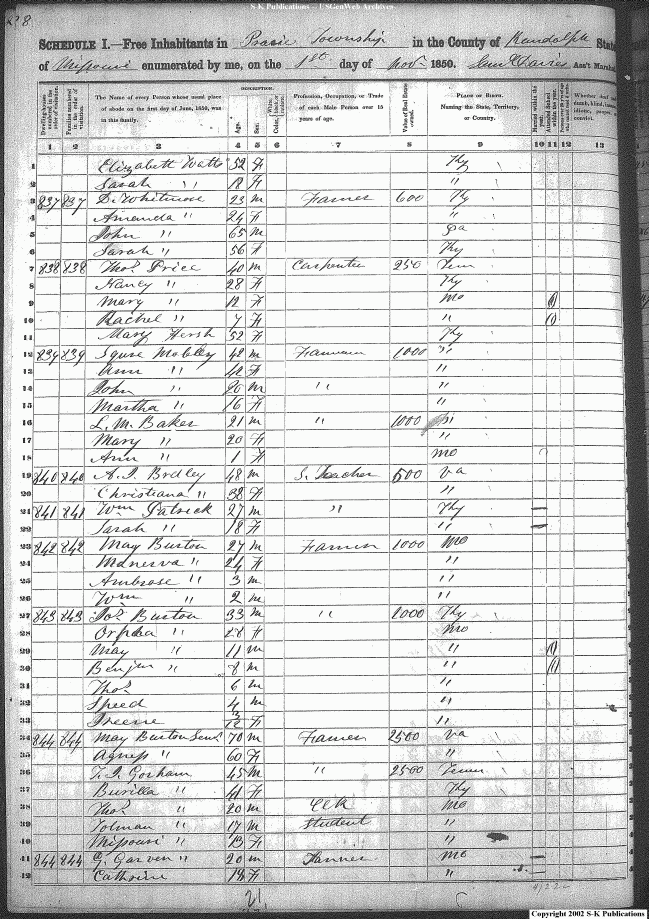 S-K Publications - USGenWeb Archives
28
SCHEDULE I.—Free Inhabitants in Prarie Township in the County of Randolph State
of Missouri enumerated by me, on the 1st day of Nov. 1850. Ass't Marshal
DESCRIPTION.
Dwelling-houses numbered in the order of visitation. Families numbered in the order of visitation. The Name of every Person whose usual place of abode on the first day of June, 1850, was in this family. Age. Sex. Color, White, black or mulatto. Profession, Occupation, or Trade of each Male Person over 15 years of age. Value of Real Estate owned. PLACE OF BIRTH. Naming the State, Territory, or Country. Married within the year. Attended School within the year. Whether deaf and dumb, blind, insane, idiotic, pauper, or convict.
1 2 3 4 5 6 7 8 9 10 11 12 13
1 Elizabeth Watts 52 F Ky
2 Sarah " 18 F "
3 837 837 D. Whitmore 23 m Farmer 600 Ky
4 Amanda " 24 F "
5 John " 65 m Pa
6 Sarah " 56 F Ky
7 838 838 Thos. Price 40 m Carpenter 250 Tenn
8 Nancy " 28 F Ky
9 Mary " 12 F Mo (1)
10 Rachel " 7 F " (1)
11 Mary Hersh 52 F Ky
12 839 839 Squire Mobley 48 m Farmer 1000 "
13 Ann " F "
14 John " 20 m " "
15 Martha " 16 F "
16 L. M. Baker 21 m " 1000
17 Mary " 20 F "
18 Ann " 1 F Mo
19 840 840 A. J. Bradley 48 m S. Teacher 500 Va
20 Christiana " 38 F "
21 841 841 Wm Patrick 27 m " Ky —
22 Sarah " 18 F " —
23 842 842 May Burton 27 m Farmer 1000 Mo
24 Manerva " 24 F "
25 Ambrose " 3 m "
26 Wm " 2 m "
27 843 843 Jos. Burton 33 m " 1000 Ky
28 Orpha " 28 F Mo
29 May " 11 m " (1)
30 Benjm " 8 m " (1)
31 Thos. 6 m "
32 Speed 4 m "
33 F "
34 844 844 May Burton Senr. 70 m Farmer 2500 Va
35 Agness " 60 F "
36 T. J. Gorham 45 m " 2500 Tenn
37 Burilla " 41 F Ky
38 Thos. " 20 m Clk Mo
39 Tolman " 17 m Student "
40 Missouri " 13 F "
41 844 844 G. Garven " 20 m Tanner Mo —
42 Cathrine 18 F " —
21
Copyright 2002 S-K Publications